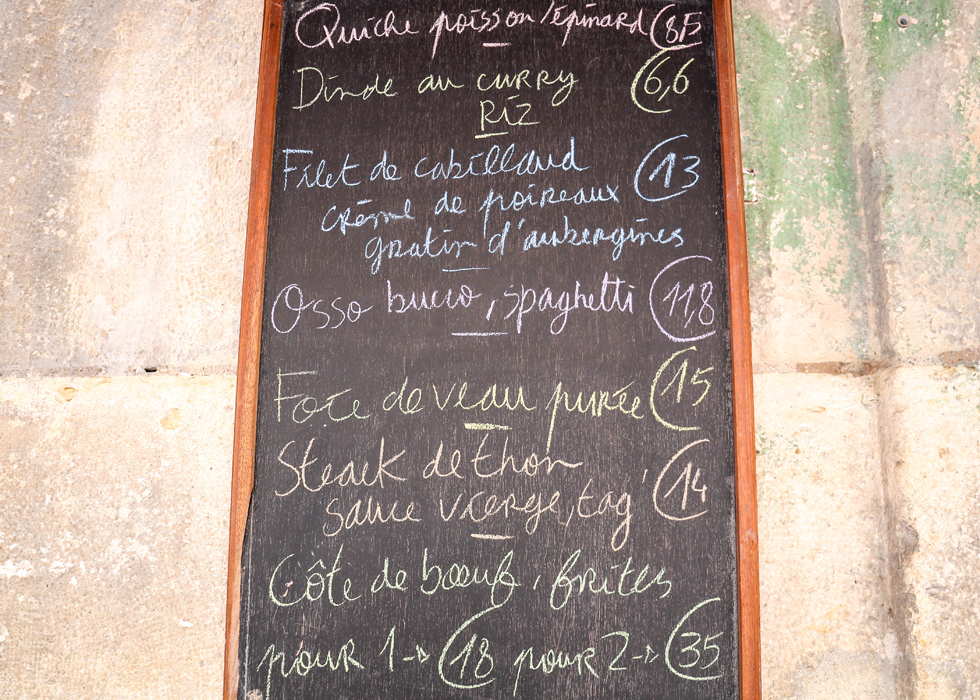 Quiche poisson/épinard 8F
Dinde au curry 6,6
Riz
Filet de cabillaud 13
crème de poireaux
gratin d'aubergines
Osso bucco, spaghetti 11,8
Foie de veau purée 15
Steack de thon
sauce vierge, tag' 14
Côte de bœuf, frites
pour 1 -> 18 pour 2 -> 35